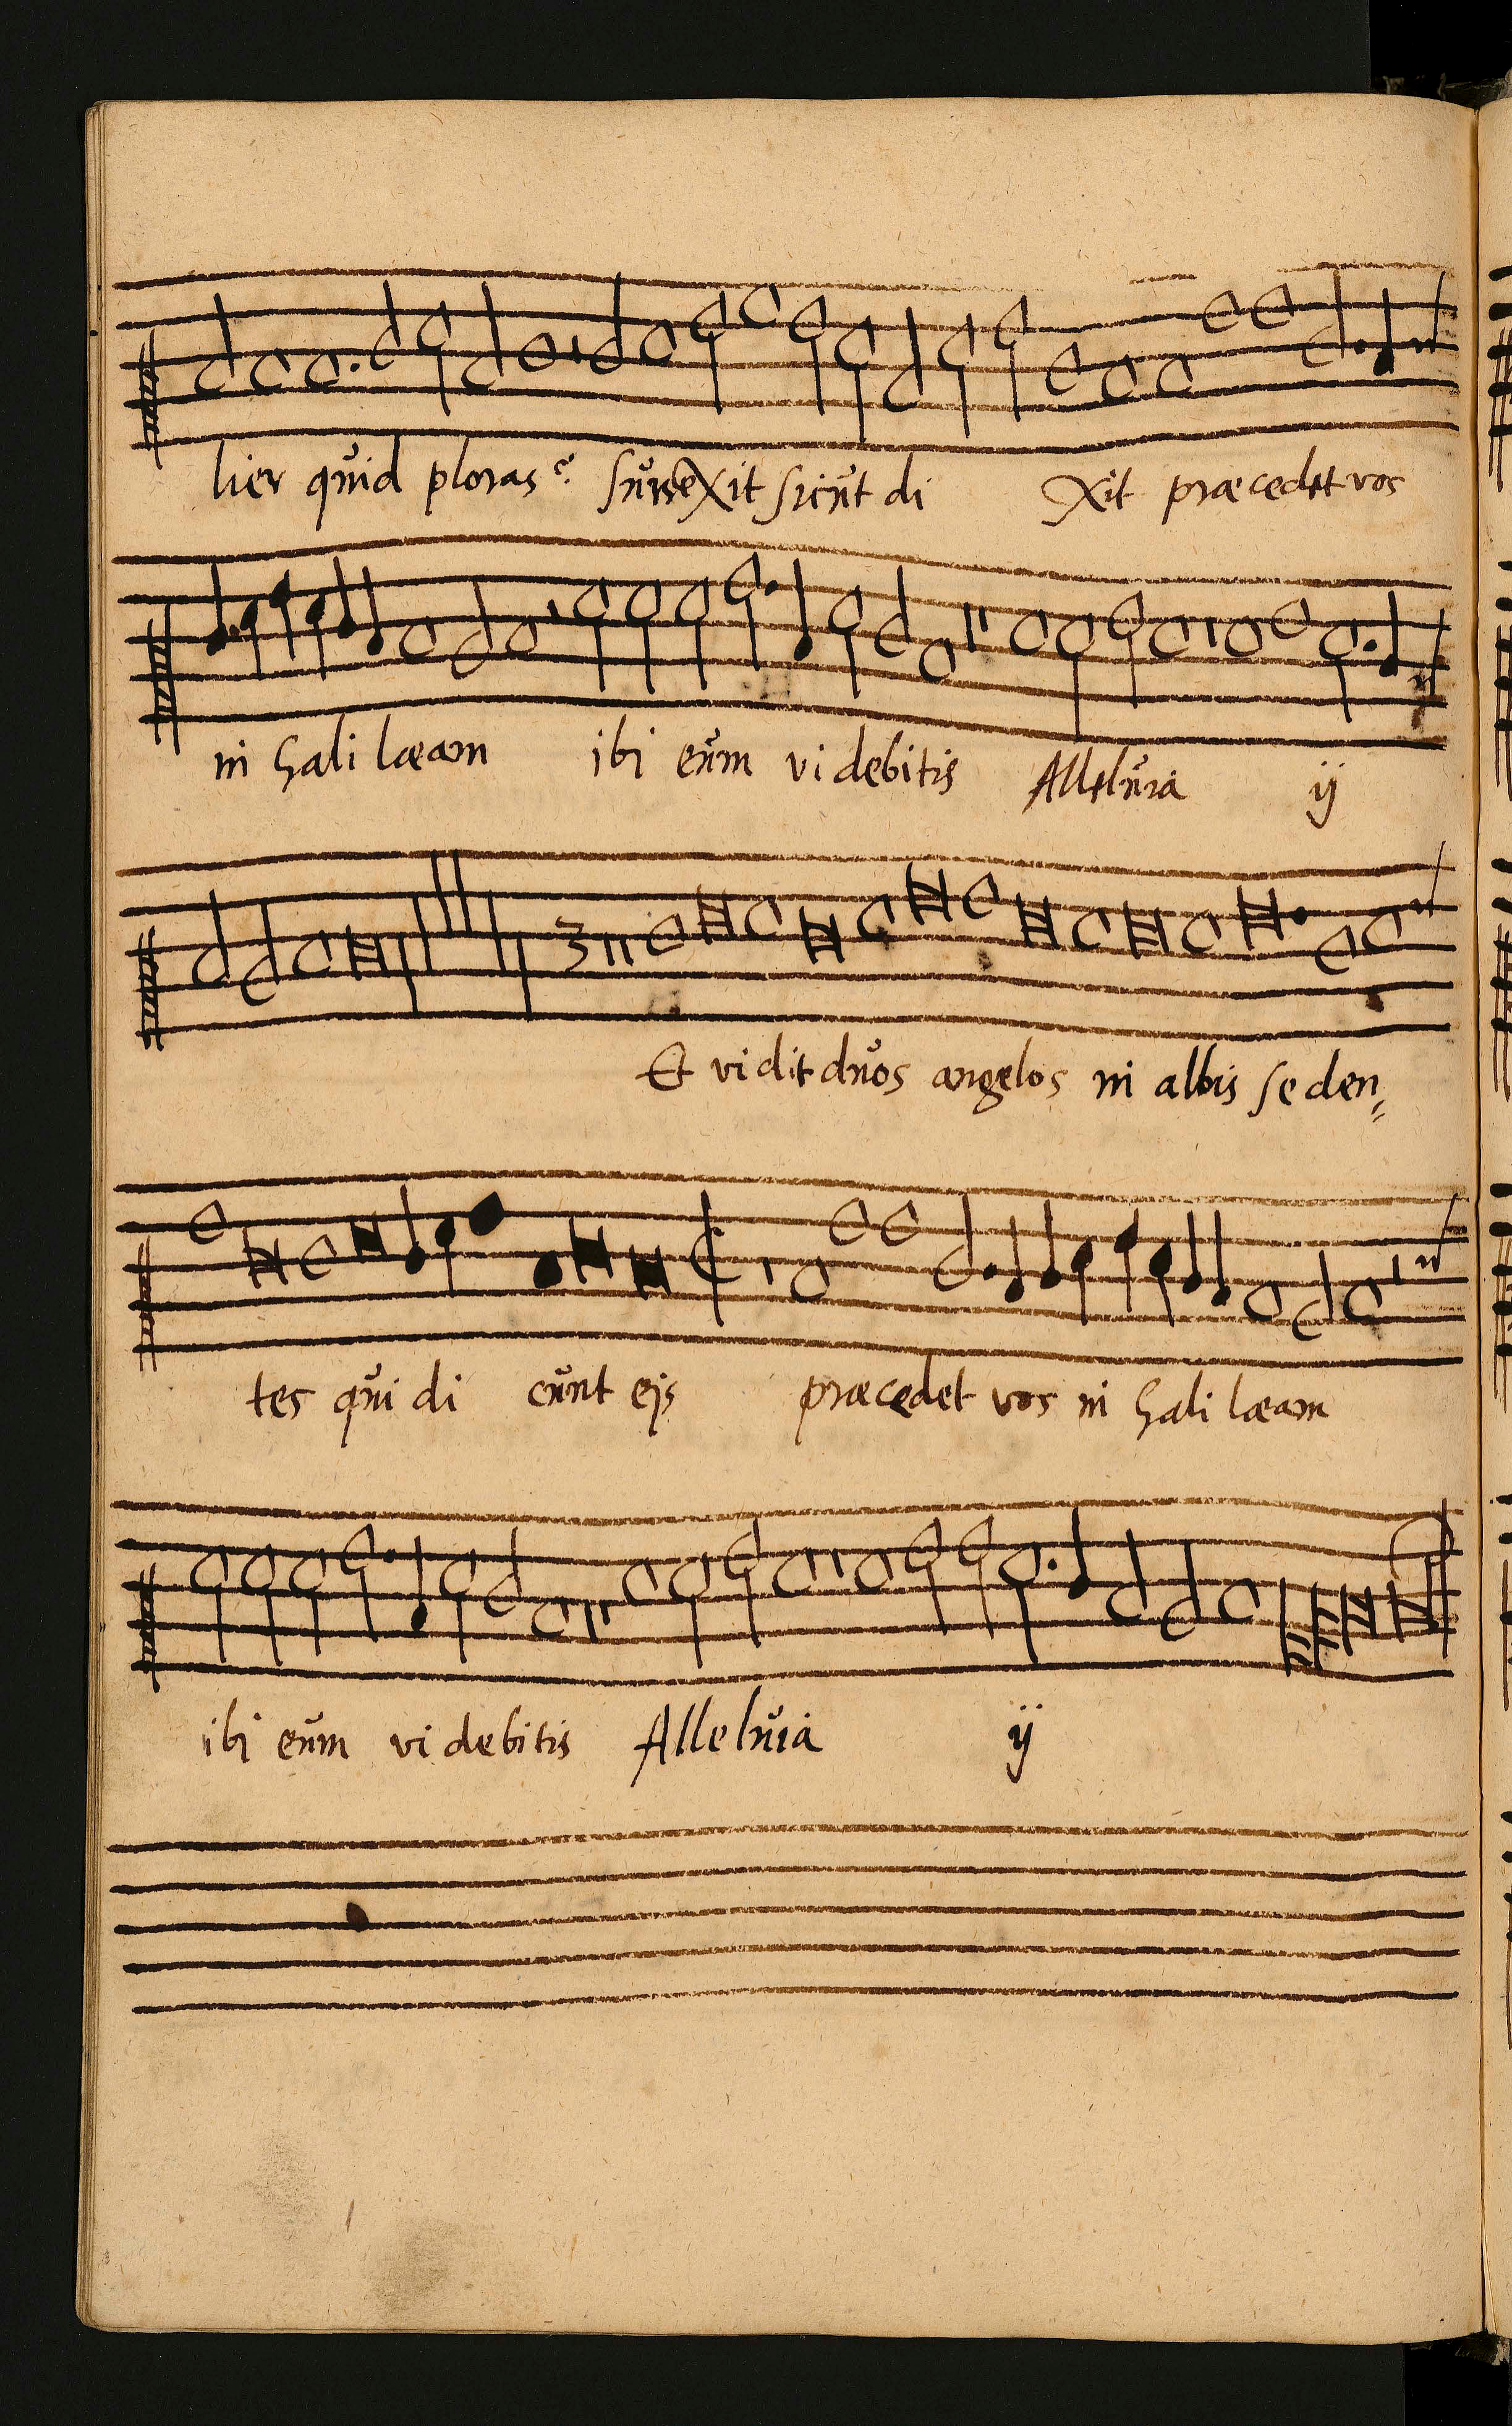 lier quid ploras? surrexit sicut di xit præcedet vos
in Gali læam ibi eum vi debitis Alleluia ij
Et vidit duos angelos in albis se den,
tes qui di cunt ejs præcedet vos in Gali læam
ibi eum vi debitis Alleluia ij